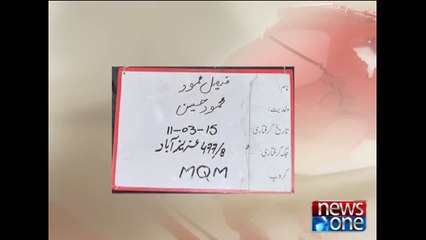 نام: فیصل محمود
ولدیت: محمود حسین
تاریخ گرفتاری: 11-03-15
جگہ گرفتاری: 477/8 عزیز آباد
گروپ: MQM
news
one